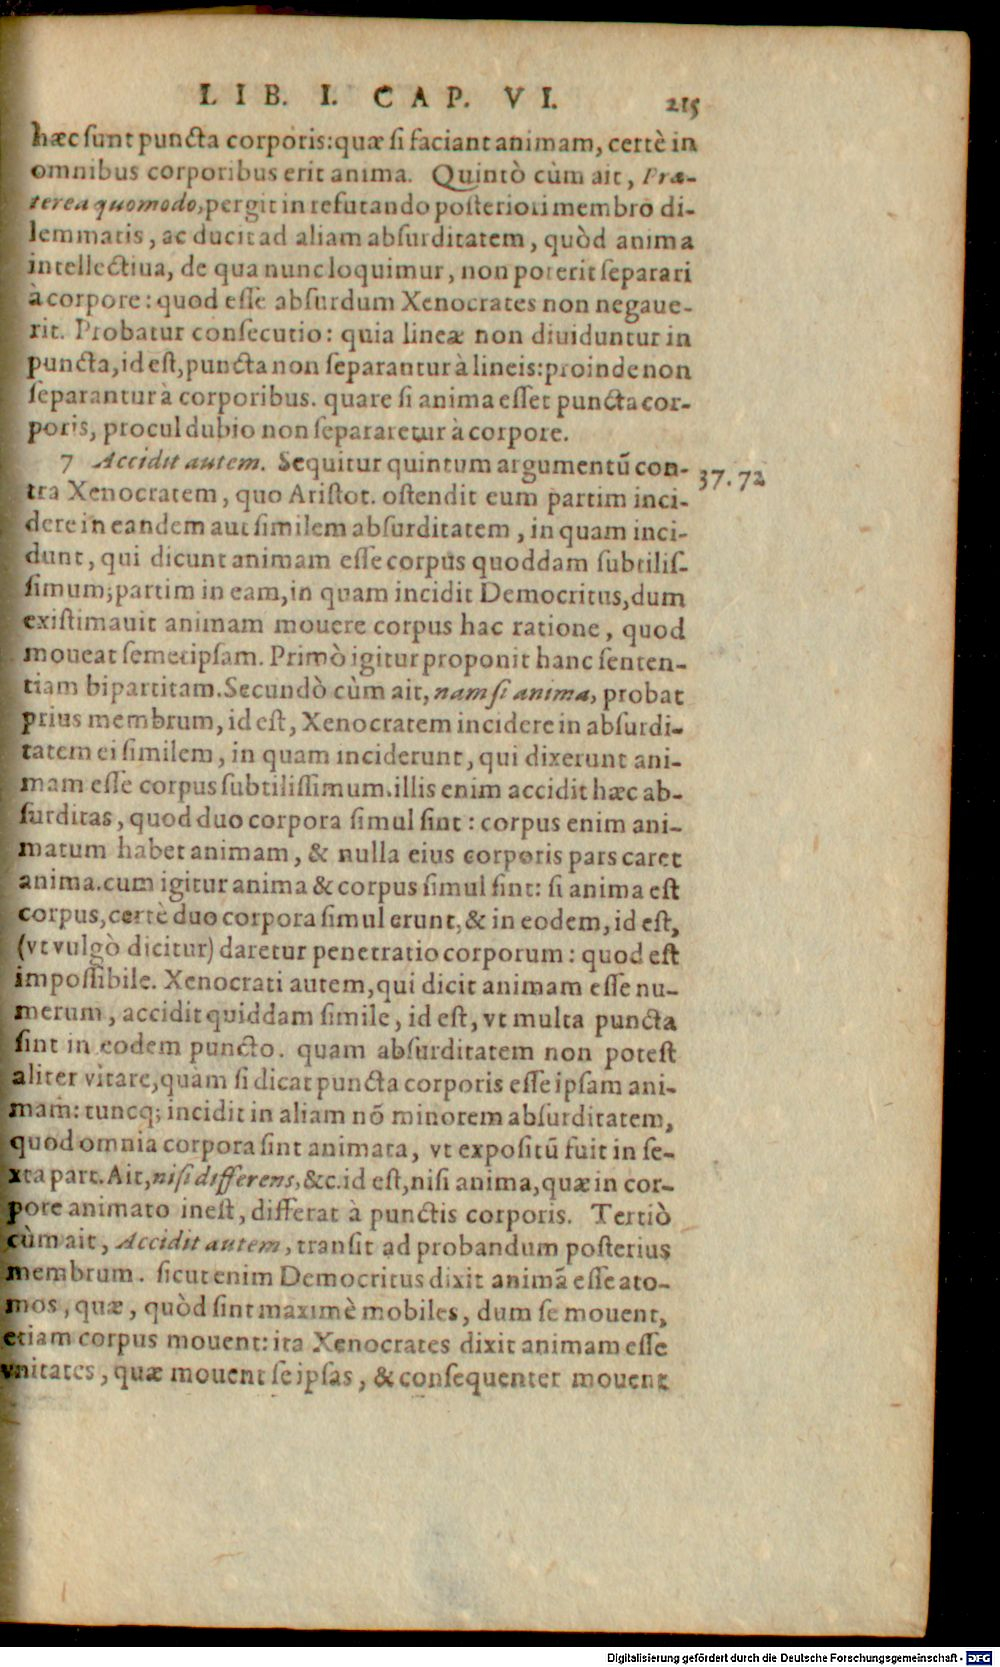 LIB. I. CAP. VI. 215
hæc sunt puncta corporis: quæ si faciant animam, certè in
omnibus corporibus erit anima. Quintò cùm ait, Præ-
terea quomodo, pergit in refutando posteriori membro di-
lemmatis, ac ducit ad aliam absurditatem, quòd anima
intellectiua, de qua nunc loquimur, non poterit separari
à corpore: quod esse absurdum Xenocrates non negaue-
rit. Probatur consecutio: quia lineæ non diuiduntur in
puncta, id est, puncta non separantur à lineis: proinde non
separantur à corporibus. quare si anima esset puncta cor-
poris, procul dubio non separaretur à corpore.
7 Accidit autem. Sequitur quintum argumentū con-
37. 72
tra Xenocratem, quo Aristot. ostendit eum partim inci-
dere in eandem aut similem absurditatem, in quam inci-
dunt, qui dicunt animam esse corpus quoddam subtilis-
simum; partim in eam, in quam incidit Democritus, dum
existimauit animam mouere corpus hac ratione, quod
moueat semetipsam. Primò igitur proponit hanc senten-
tiam bipartitam. Secundò cùm ait, nam si anima, probat
prius membrum, id est, Xenocratem incidere in absurdi-
tatem ei similem, in quam inciderunt, qui dixerunt ani-
mam esse corpus subtilissimum. illis enim accidit hæc ab-
surditas, quod duo corpora simul sint: corpus enim ani-
matum habet animam, & nulla eius corporis pars caret
anima. cum igitur anima & corpus simul sint: si anima est
corpus, certè duo corpora simul erunt, & in eodem, id est,
(vt vulgò dicitur) daretur penetratio corporum: quod est
impossibile. Xenocrati autem, qui dicit animam esse nu-
merum, accidit quiddam simile, id est, vt multa puncta
sint in eodem puncto. quam absurditatem non potest
aliter vitare, quàm si dicat puncta corporis esse ipsam ani-
mam: tuncq; incidit in aliam nō minorem absurditatem,
quod omnia corpora sint animata, vt expositū fuit in se-
xta part. Ait, nisi differens, &c. id est, nisi anima, quæ in cor-
pore animato inest, differat à punctis corporis. Tertiò
cùm ait, Accidit autem, transit ad probandum posterius
membrum. sicut enim Democritus dixit animā esse ato-
mos, quæ, quòd sint maximè mobiles, dum se mouent,
etiam corpus mouent: ita Xenocrates dixit animam esse
vnitates, quæ mouent se ipsas, & consequenter mouent
Digitalisierung gefördert durch die Deutsche Forschungsgemeinschaft - DFG